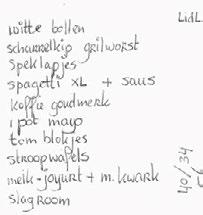 witte bollen
scharrelkip grilworst
speklapjes
spagetti XL + saus
koffie goudmerk
1 pot mayo
tom blokjes
stroopwafels
melk - joyurt + m. kwark
slagroom
LidL
40/34